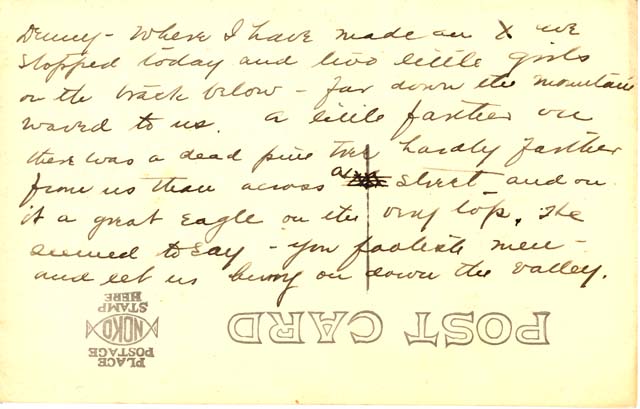 Denny - Where I have made an X we
stopped today and two little girls
on the track below - far down the mountain
waved to us. A little farther on
there was a dead pine tree hardly farther
from us than across a street - and on
it a great Eagle on the very top. He
seemed to say - you foolish men -
and let us hurry on down the valley.
POST CARD
PLACE
POSTAGE
NOKO
STAMP
HERE